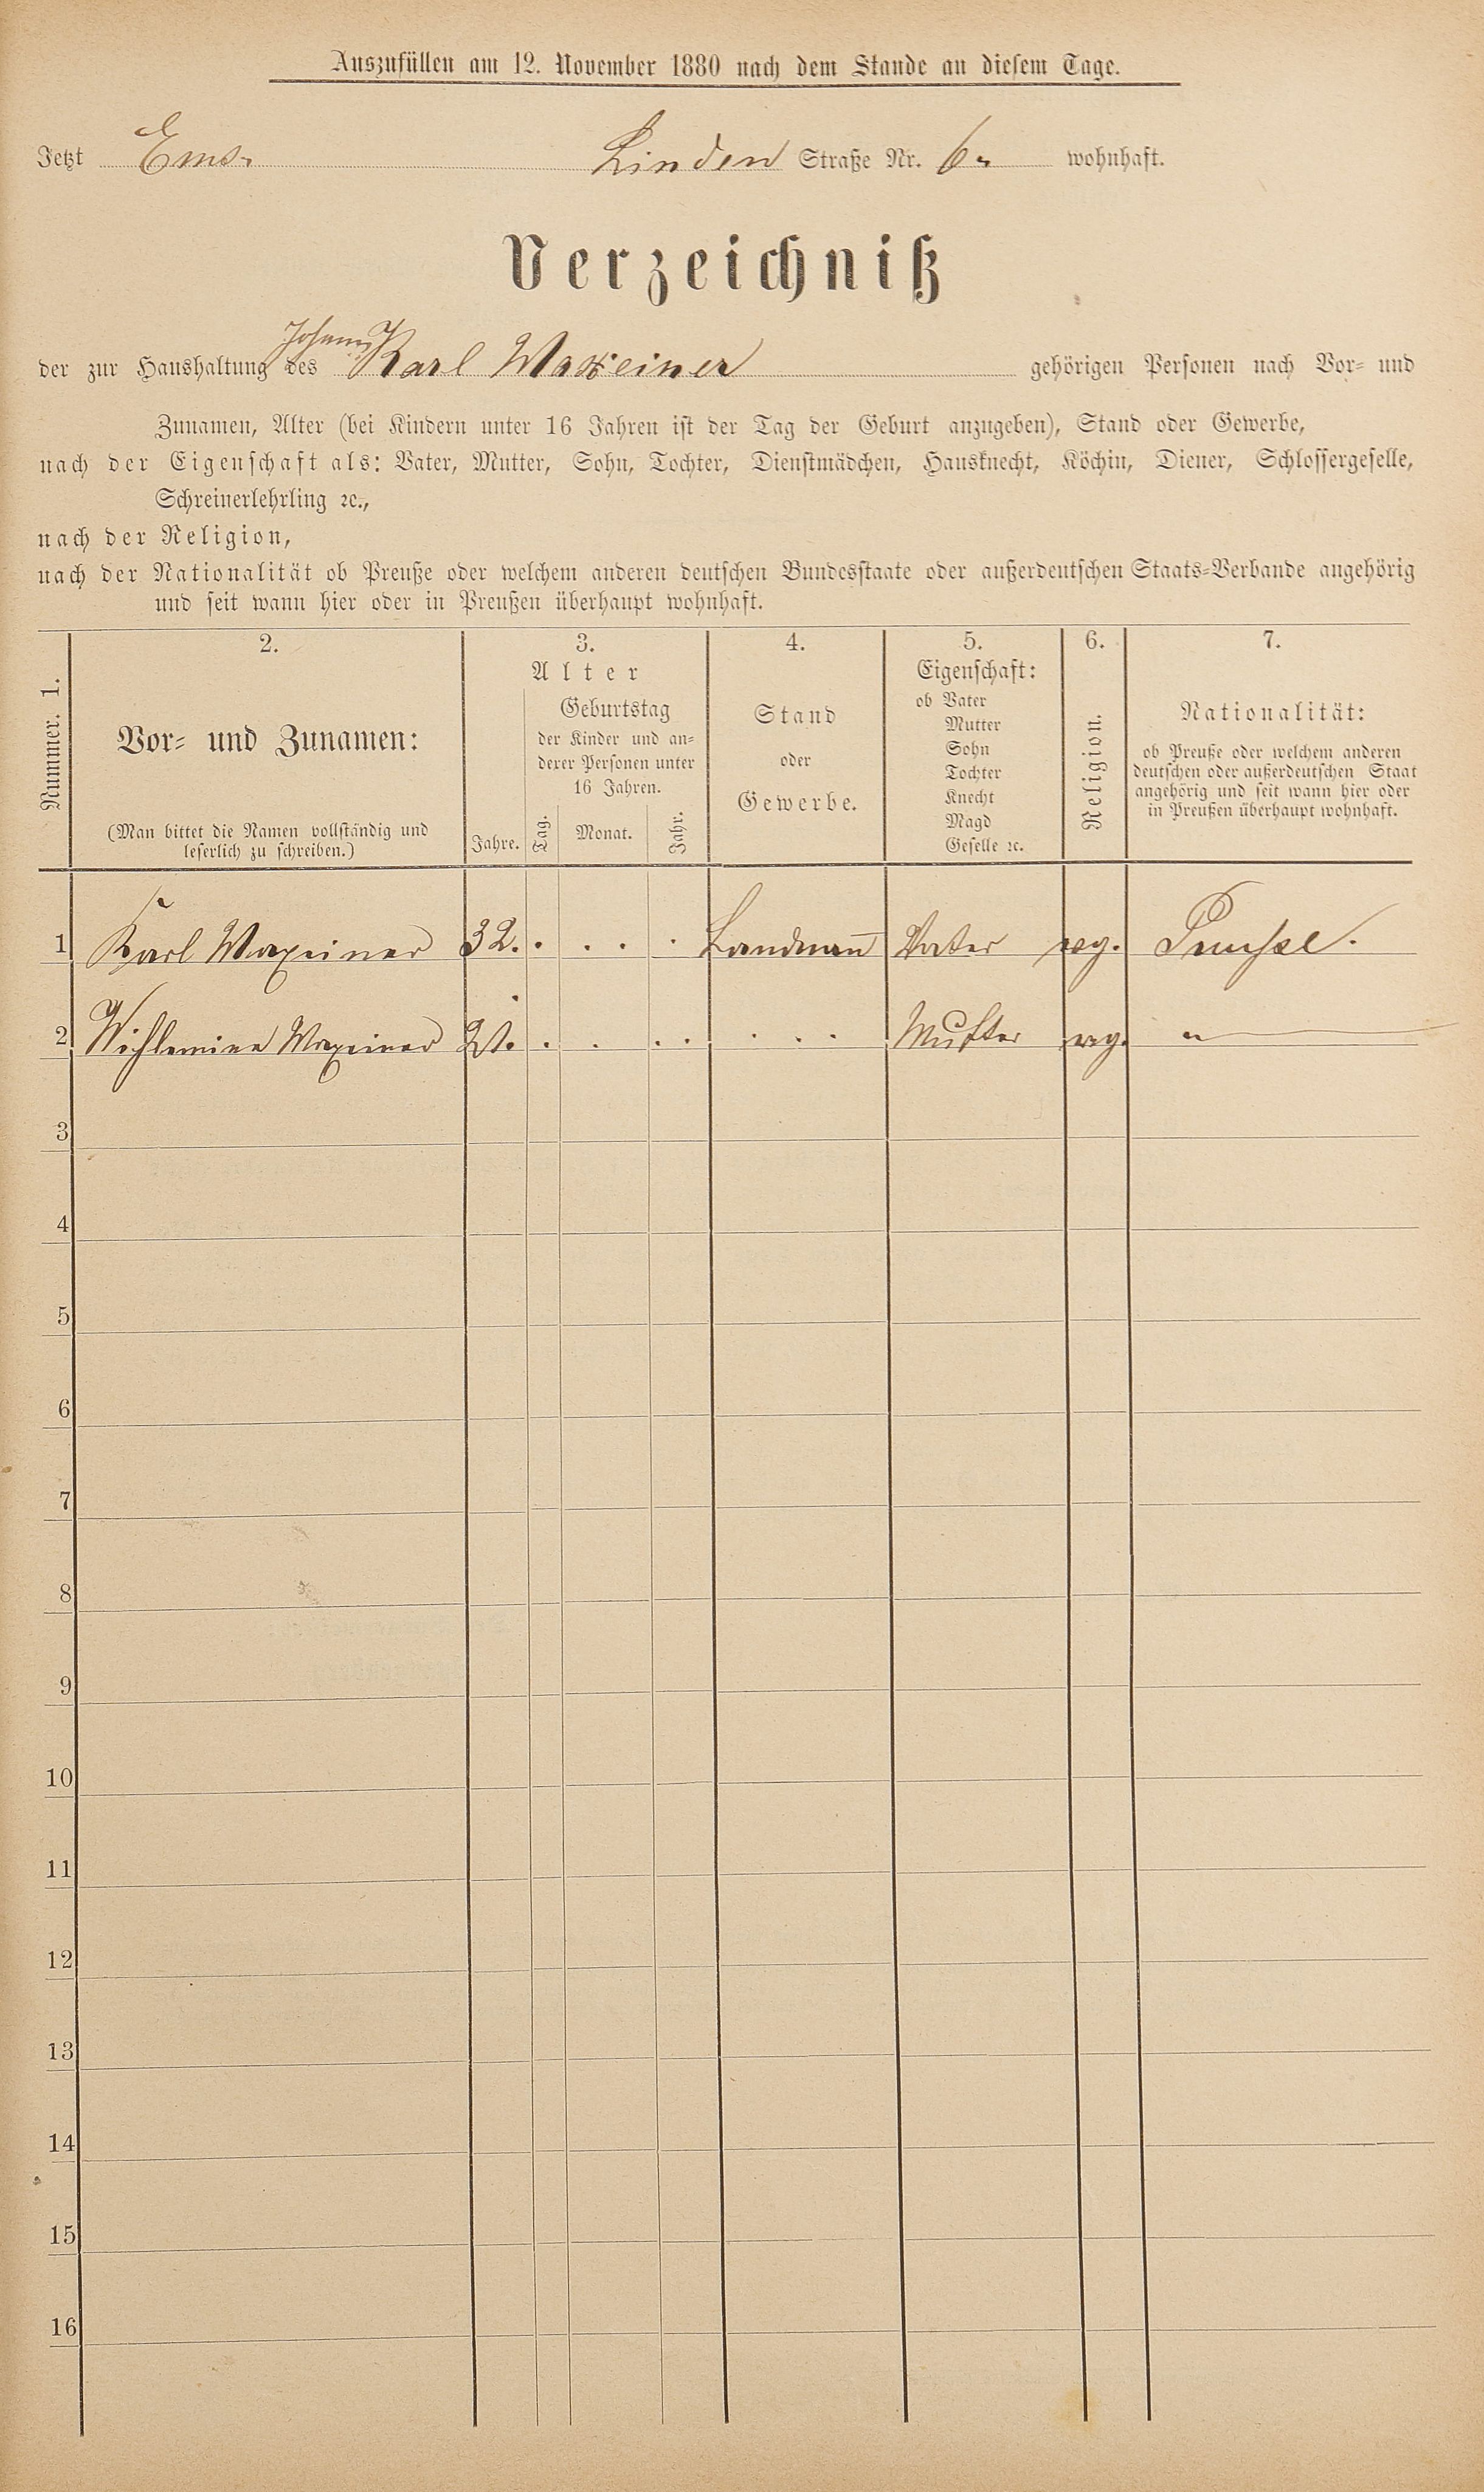 Auszufüllen am 12. November 1880 nach dem Stande an diesem Tage.
Jetzt Ems. Linden Straße Nr. 6. wohnhaft.
Verzeichniß
Johann
der zur Haushaltung des Karl Waxeiner gehörigen Personen nach Vor- und
Zunamen, Alter (bei Kindern unter 16 Jahren ist der Tag der Geburt anzugeben), Stand oder Gewerbe,
nach der Eigenschaft als: Vater, Mutter, Sohn, Tochter, Dienstmädchen, Hausknecht, Köchin, Diener, Schlossergeselle,
Schreinerlehrling ꝛc.,
nach der Religion,
nach der Nationalität ob Preuße oder welchem anderen deutschen Bundesstaate oder außerdeutschen Staats-Verbande angehörig
und seit wann hier oder in Preußen überhaupt wohnhaft.
Nummer. 1.
2.
Vor- und Zunamen:
(Man bittet die Namen vollständig und
leserlich zu schreiben.)
3.
Alter
Jahre.
Geburtstag
der Kinder und an-
derer Personen unter
16 Jahren.
Tag. Monat. Jahr.
4.
Stand
oder
Gewerbe.
5.
Eigenschaft:
ob Vater
Mutter
Sohn
Tochter
Knecht
Magd
Geselle ꝛc.
6.
Religion.
7.
Nationalität:
ob Preuße oder welchem anderen
deutschen oder außerdeutschen Staat
angehörig und seit wann hier oder
in Preußen überhaupt wohnhaft.
1 Karl Waxeiner 32. . . . . Landmann Vater evg. Preuße.
2 Wihlemine Waxeiner . . . . . . . Mutter evg. "
3
4
5
6
7
8
9
10
11
12
13
14
15
16